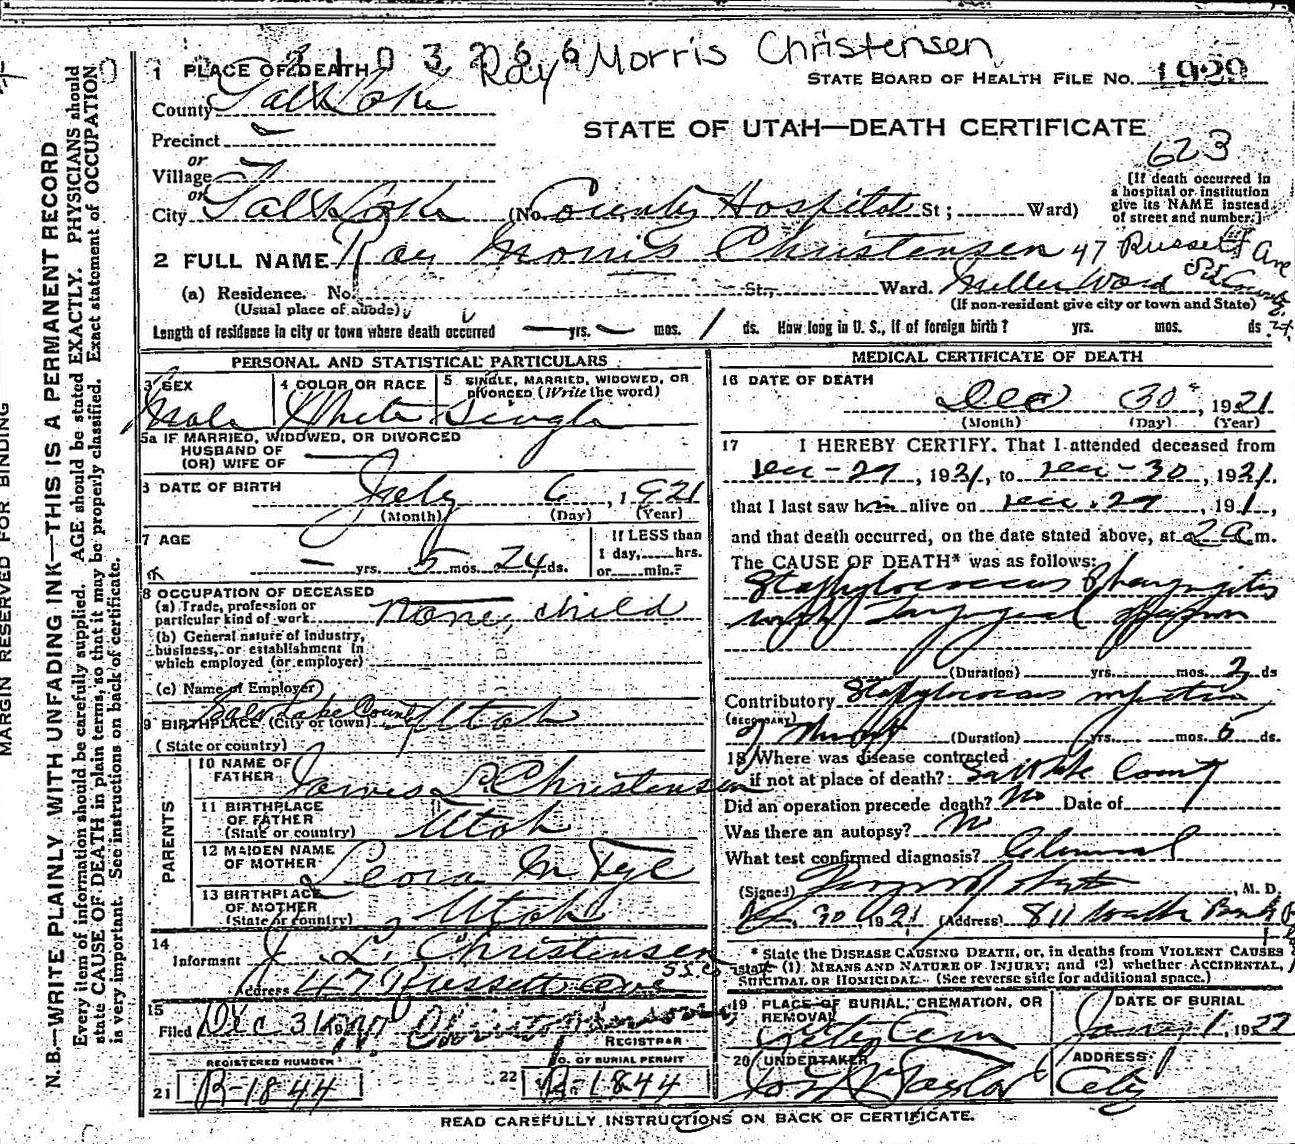 2103266
Ray Morris Christensen
1 PLACE OF DEATH
STATE BOARD OF HEALTH FILE No. 1929
County Salt Lake
STATE OF UTAH—DEATH CERTIFICATE
Precinct
623
or
Village
or
[If death occurred in
a hospital or institution
give its NAME instead
of street and number.]
City Salt Lake (No. County Hospital St; Ward)
2 FULL NAME Ray Morris Christensen 47 Russett Ave
(a) Residence. No. St., Ward. Miller Ward
(Usual place of abode) (If non-resident give city or town and State)
Length of residence in city or town where death occurred yrs. mos. 1 ds. How long in U. S., if of foreign birth? yrs. mos. ds
PERSONAL AND STATISTICAL PARTICULARS
3 SEX Male
4 COLOR OR RACE White
5 SINGLE, MARRIED, WIDOWED, OR
DIVORCED (Write the word) Single
5a IF MARRIED, WIDOWED, OR DIVORCED
HUSBAND OF
(OR) WIFE OF
DATE OF BIRTH July 6, 1921
(Month) (Day) (Year)
7 AGE — yrs. 5 mos. 24 ds.
If LESS than
1 day, hrs.
or min.?
8 OCCUPATION OF DECEASED
(a) Trade, profession or
particular kind of work None, child
(b) General nature of industry,
business, or establishment in
which employed (or employer)
(c) Name of Employer
9 BIRTHPLACE (City or town) Salt Lake County Utah
(State or country)
PARENTS
10 NAME OF
FATHER James L. Christensen
11 BIRTHPLACE
OF FATHER
(State or country) Utah
12 MAIDEN NAME
OF MOTHER Leora M Tye
13 BIRTHPLACE
OF MOTHER
(State or country) Utah
14
Informant J. L. Christensen
Address 47 Russett Ave
15
Filed Dec 31
REGISTRAR
REGISTERED NUMBER
21 B-1844
NO. OF BURIAL PERMIT
22 B-1844
MEDICAL CERTIFICATE OF DEATH
16 DATE OF DEATH
Dec 30, 1921
(Month) (Day) (Year)
17 I HEREBY CERTIFY, That I attended deceased from
Dec-29, 1921, to Dec-30, 1921,
that I last saw him alive on Dec. 29, 191,
and that death occurred, on the date stated above, at 2 a m.
The CAUSE OF DEATH* was as follows:
Staphylococcus Pharyngitis
with Laryngeal
(Duration) yrs. mos. 2 ds
Contributory Staphylococcus
(SECONDARY)
of (Duration) yrs. mos. 5 ds.
18 Where was disease contracted
if not at place of death? Salt Lake County
Did an operation precede death? No Date of
Was there an autopsy? No
What test confirmed diagnosis? Clinical
(Signed) , M. D.
Dec 30, 1921 (Address) 811 Walker Bank
* State the DISEASE CAUSING DEATH, or, in deaths from VIOLENT CAUSES
state (1) MEANS AND NATURE OF INJURY; and (2) whether ACCIDENTAL,
SUICIDAL OR HOMICIDAL. (See reverse side for additional space.)
19 PLACE OF BURIAL, CREMATION, OR
REMOVAL
City Cem
DATE OF BURIAL
Jan 1, 1922
20 UNDERTAKER
Taylor
ADDRESS
City
READ CAREFULLY INSTRUCTIONS ON BACK OF CERTIFICATE.
MARGIN RESERVED FOR BINDING
N.B.—WRITE PLAINLY, WITH UNFADING INK—THIS IS A PERMANENT RECORD
Every item of information should be carefully supplied. AGE should be stated EXACTLY. PHYSICIANS should
state CAUSE OF DEATH in plain terms, so that it may be properly classified. Exact statement of OCCUPATION
is very important. See instructions on back of certificate.